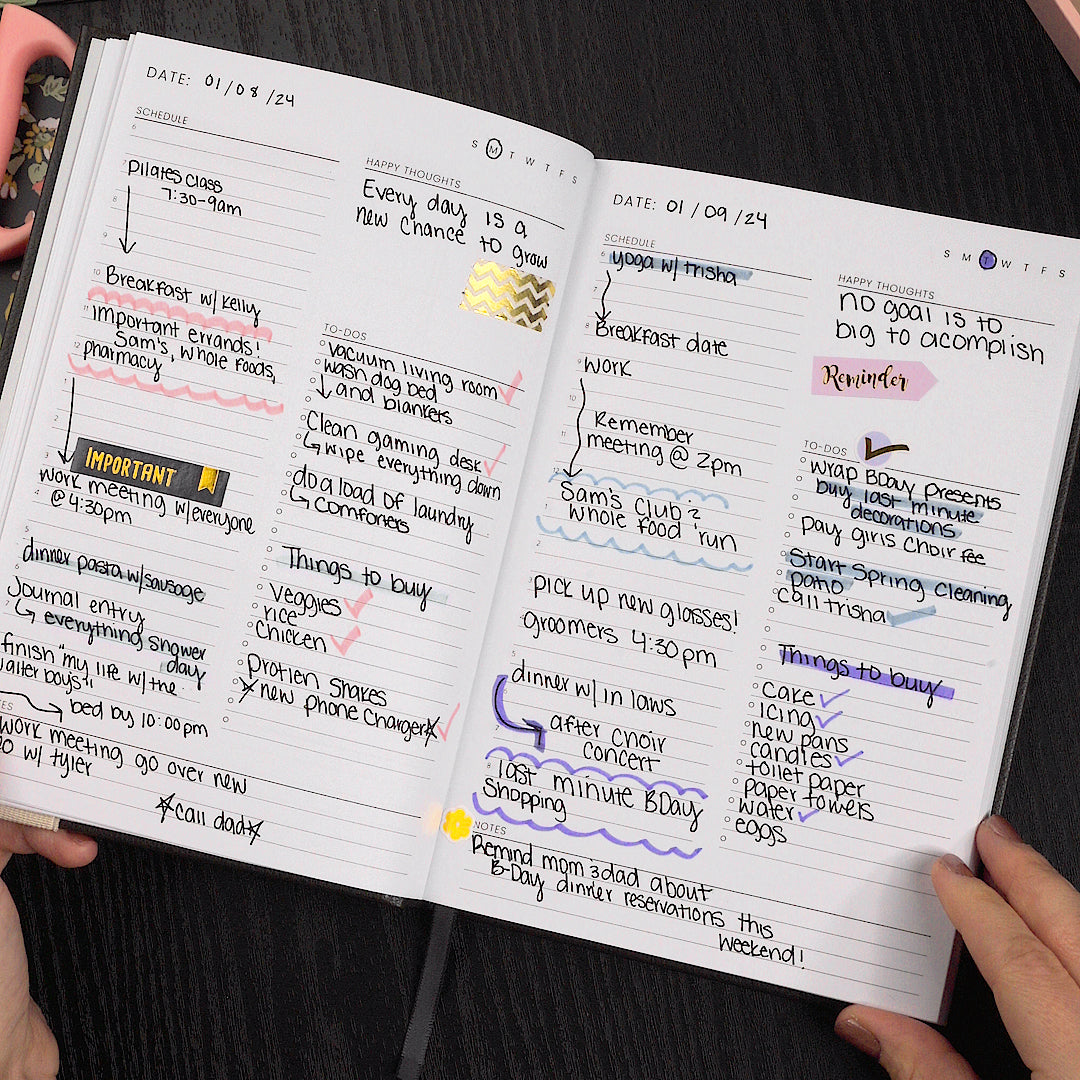 DATE: 01/08/24
S M T W T F S
SCHEDULE
6
7
Pilates class
7:30-9am
8
9
10
Breakfast w/ Kelly
11
Important errands!
Sam's, whole foods,
12
pharmacy
1
2
3
IMPORTANT
work meeting w/everyone
4
@ 4:30pm
5
dinner pasta w/sausage
Journal entry
7
↳ everything shower
day
finish "my life w/ the
walter boys"
bed by 10:00pm
HAPPY THOUGHTS
Every day is a
new chance to grow
TO-DOS
vacuum living room
wash dog bed
↓ and blankets
Clean gaming desk
↳ wipe everything down
do a load of laundry
↳ comforters
Things to buy
veggies
rice
chicken
protien shakes
new phone charger
work meeting go over new
w/ tyler
call dad
DATE: 01/09/24
S M T W T F S
SCHEDULE
6
yoga w/ trisha
8
Breakfast date
9
work
10
Remember
11
meeting @ 2pm
12
Sam's Club &
1
whole food run
2
3
pick up new glasses!
groomers 4:30pm
5
dinner w/ in laws
after choir
7
concert
8
last minute BDay
Shopping
HAPPY THOUGHTS
no goal is to
big to acomplish
Reminder
TO-DOS
wrap BDay presents
buy last minute
decorations
pay girls choir fee
Start Spring Cleaning
patio
call trisha
Things to buy
cake
icing
new pans
candles
toilet paper
paper towels
water
eggs
NOTES
Remind mom & dad about
B-Day dinner reservations this
weekend!